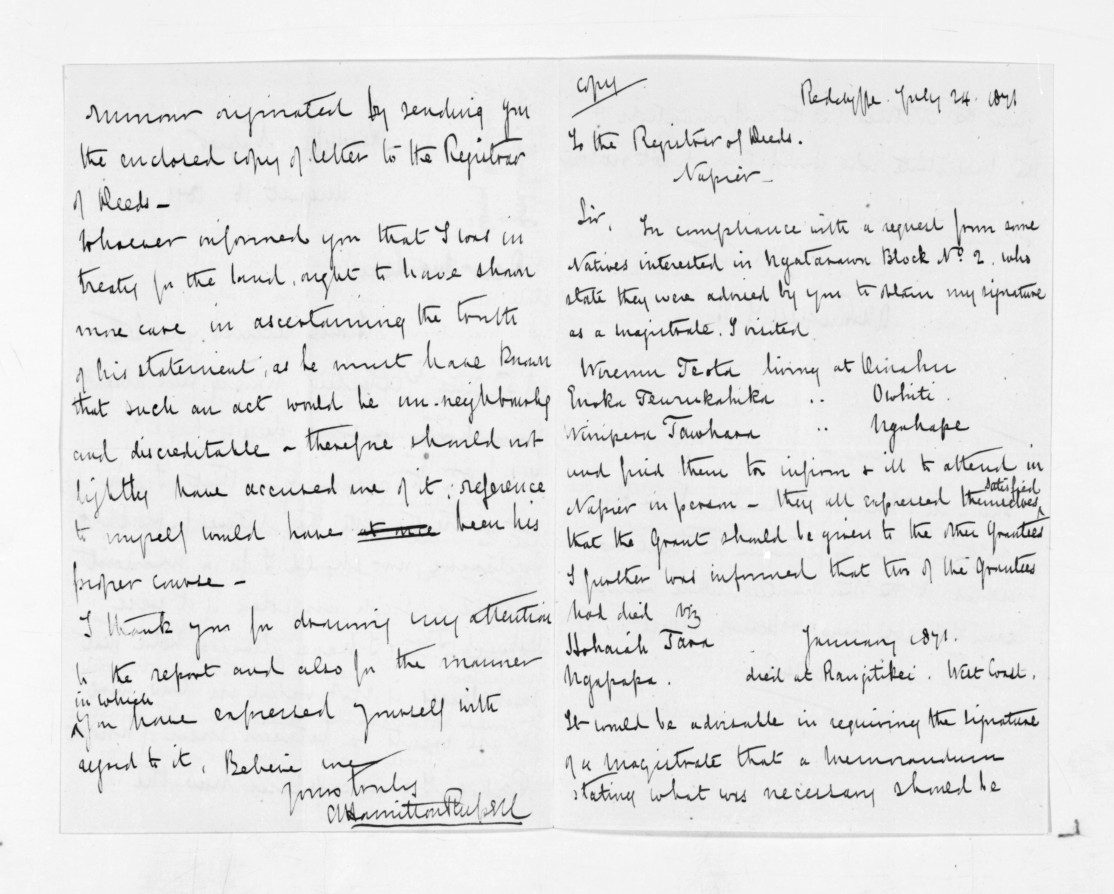 rumour originated by sending you
the enclosed copy of letter to the Registrar
of Deeds –
Whoever informed you that I was in
treaty for the land, ought to have shown
more care in ascertaining the truth
of his statement, as he must have known
that such an act would be un-neighbourly
and discreditable – therefore should not
lightly have accused me of it; reference
to myself would have at once been his
proper course –
I thank you for drawing my attention
to the report and also for the manner
in which
you have expressed yourself with
regard to it. Believe me
yours truly
A Hamilton Russell
Copy
Redclyffe. July 24. 1871
To the Registrar of Deeds.
Napier –
Sir, In compliance with a request from some
Natives interested in Ngatarawa Block No. 2. who
state they were advised by you to obtain my signature
as a magistrate. I visited
Wiremu Teota living at
Enoka Teurukahika .. Owhiti.
Winipera Tawhara .. Ngahape
and find them too infirm & ill to attend in
Napier in person – they all expressed themselves satisfied
that the Grant should be given to the other Grantees
I further was informed that two of the Grantees
had died viz
Hohaiah Tara January 1871.
Ngapapa. died at Rangitikei. West Coast.
It would be advisable in requiring the signature
of a Magistrate that a Memorandum
stating what was necessary should be